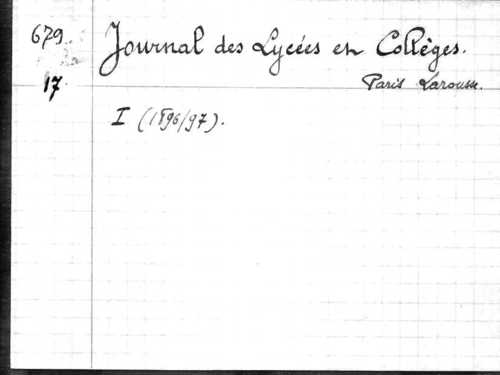 679. Journal des Lycées en Collèges.
17. Paris Larousse.
I (1896/97).